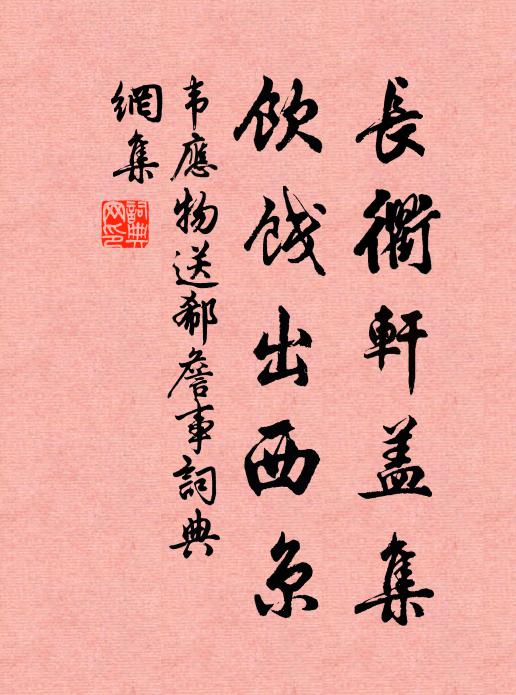 長衢軒盖集
飲餞出西京
韦應物送郗詹事詞典
網集
詞典
网印